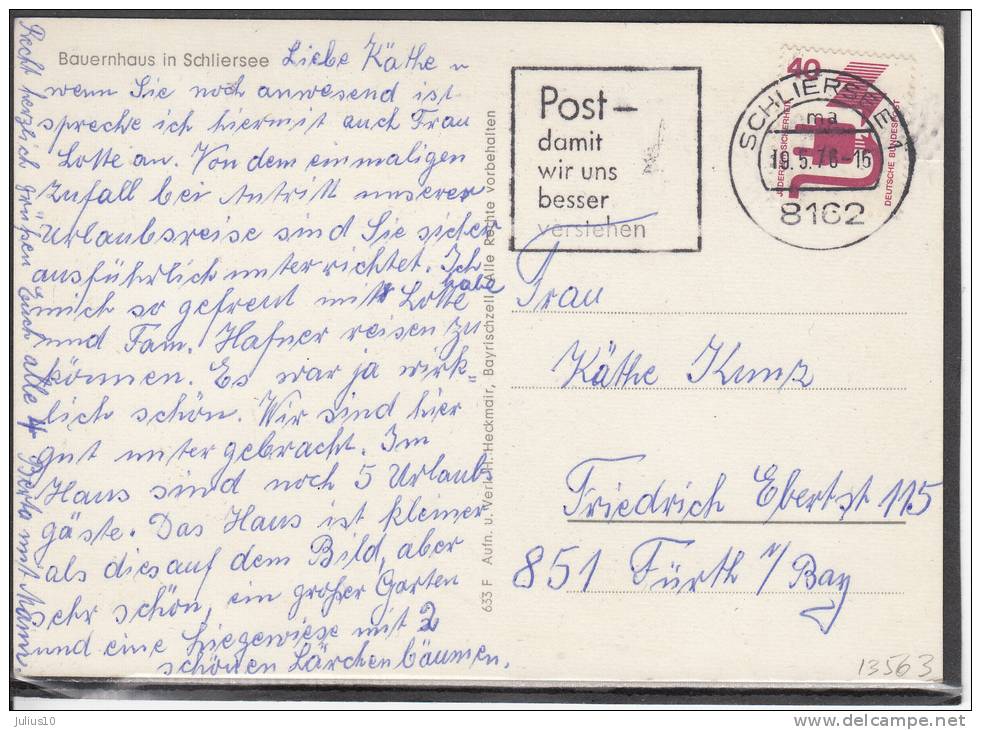 Bauernhaus in Schliersee
Liebe Käthe u
wenn Sie noch anwesend ist
spreche ich hiermit auch Frau
Lotte an. Von dem einmaligen
Zufall bei Antritt unserer
Urlaubsreise sind Sie sicher
ausführlich unterrichtet. Ich
habe
mich so gefreut mit Lotte
und Fam. Hafner reisen zu
können. Es war ja wirk"
lich schön. Wir sind hier
gut untergebracht. Im
Haus sind noch 5 Urlaubs
gäste. Das Haus ist kleiner
als dies auf dem Bild, aber
sehr schön, ein großer Garten
und eine Liegewiese mit 2
schönen Lärchenbäumen.
Recht herzlich grüßen Euch alle 4 Berta mit Mann.
633 F Aufn. u. Verl. H. Heckmair, Bayrischzell / Alle Rechte vorbehalten
Post–
damit
wir uns
besser
verstehen
40
JEDERZEIT SICHERHEIT
DEUTSCHE BUNDESPOST
SCHLIERSEE 1
ma
19.5.76-16
8162
Frau
Käthe Kunz
Friedrich Ebertst 115
851 Fürth i/Bay
13563
julius10
www.delcampe.net